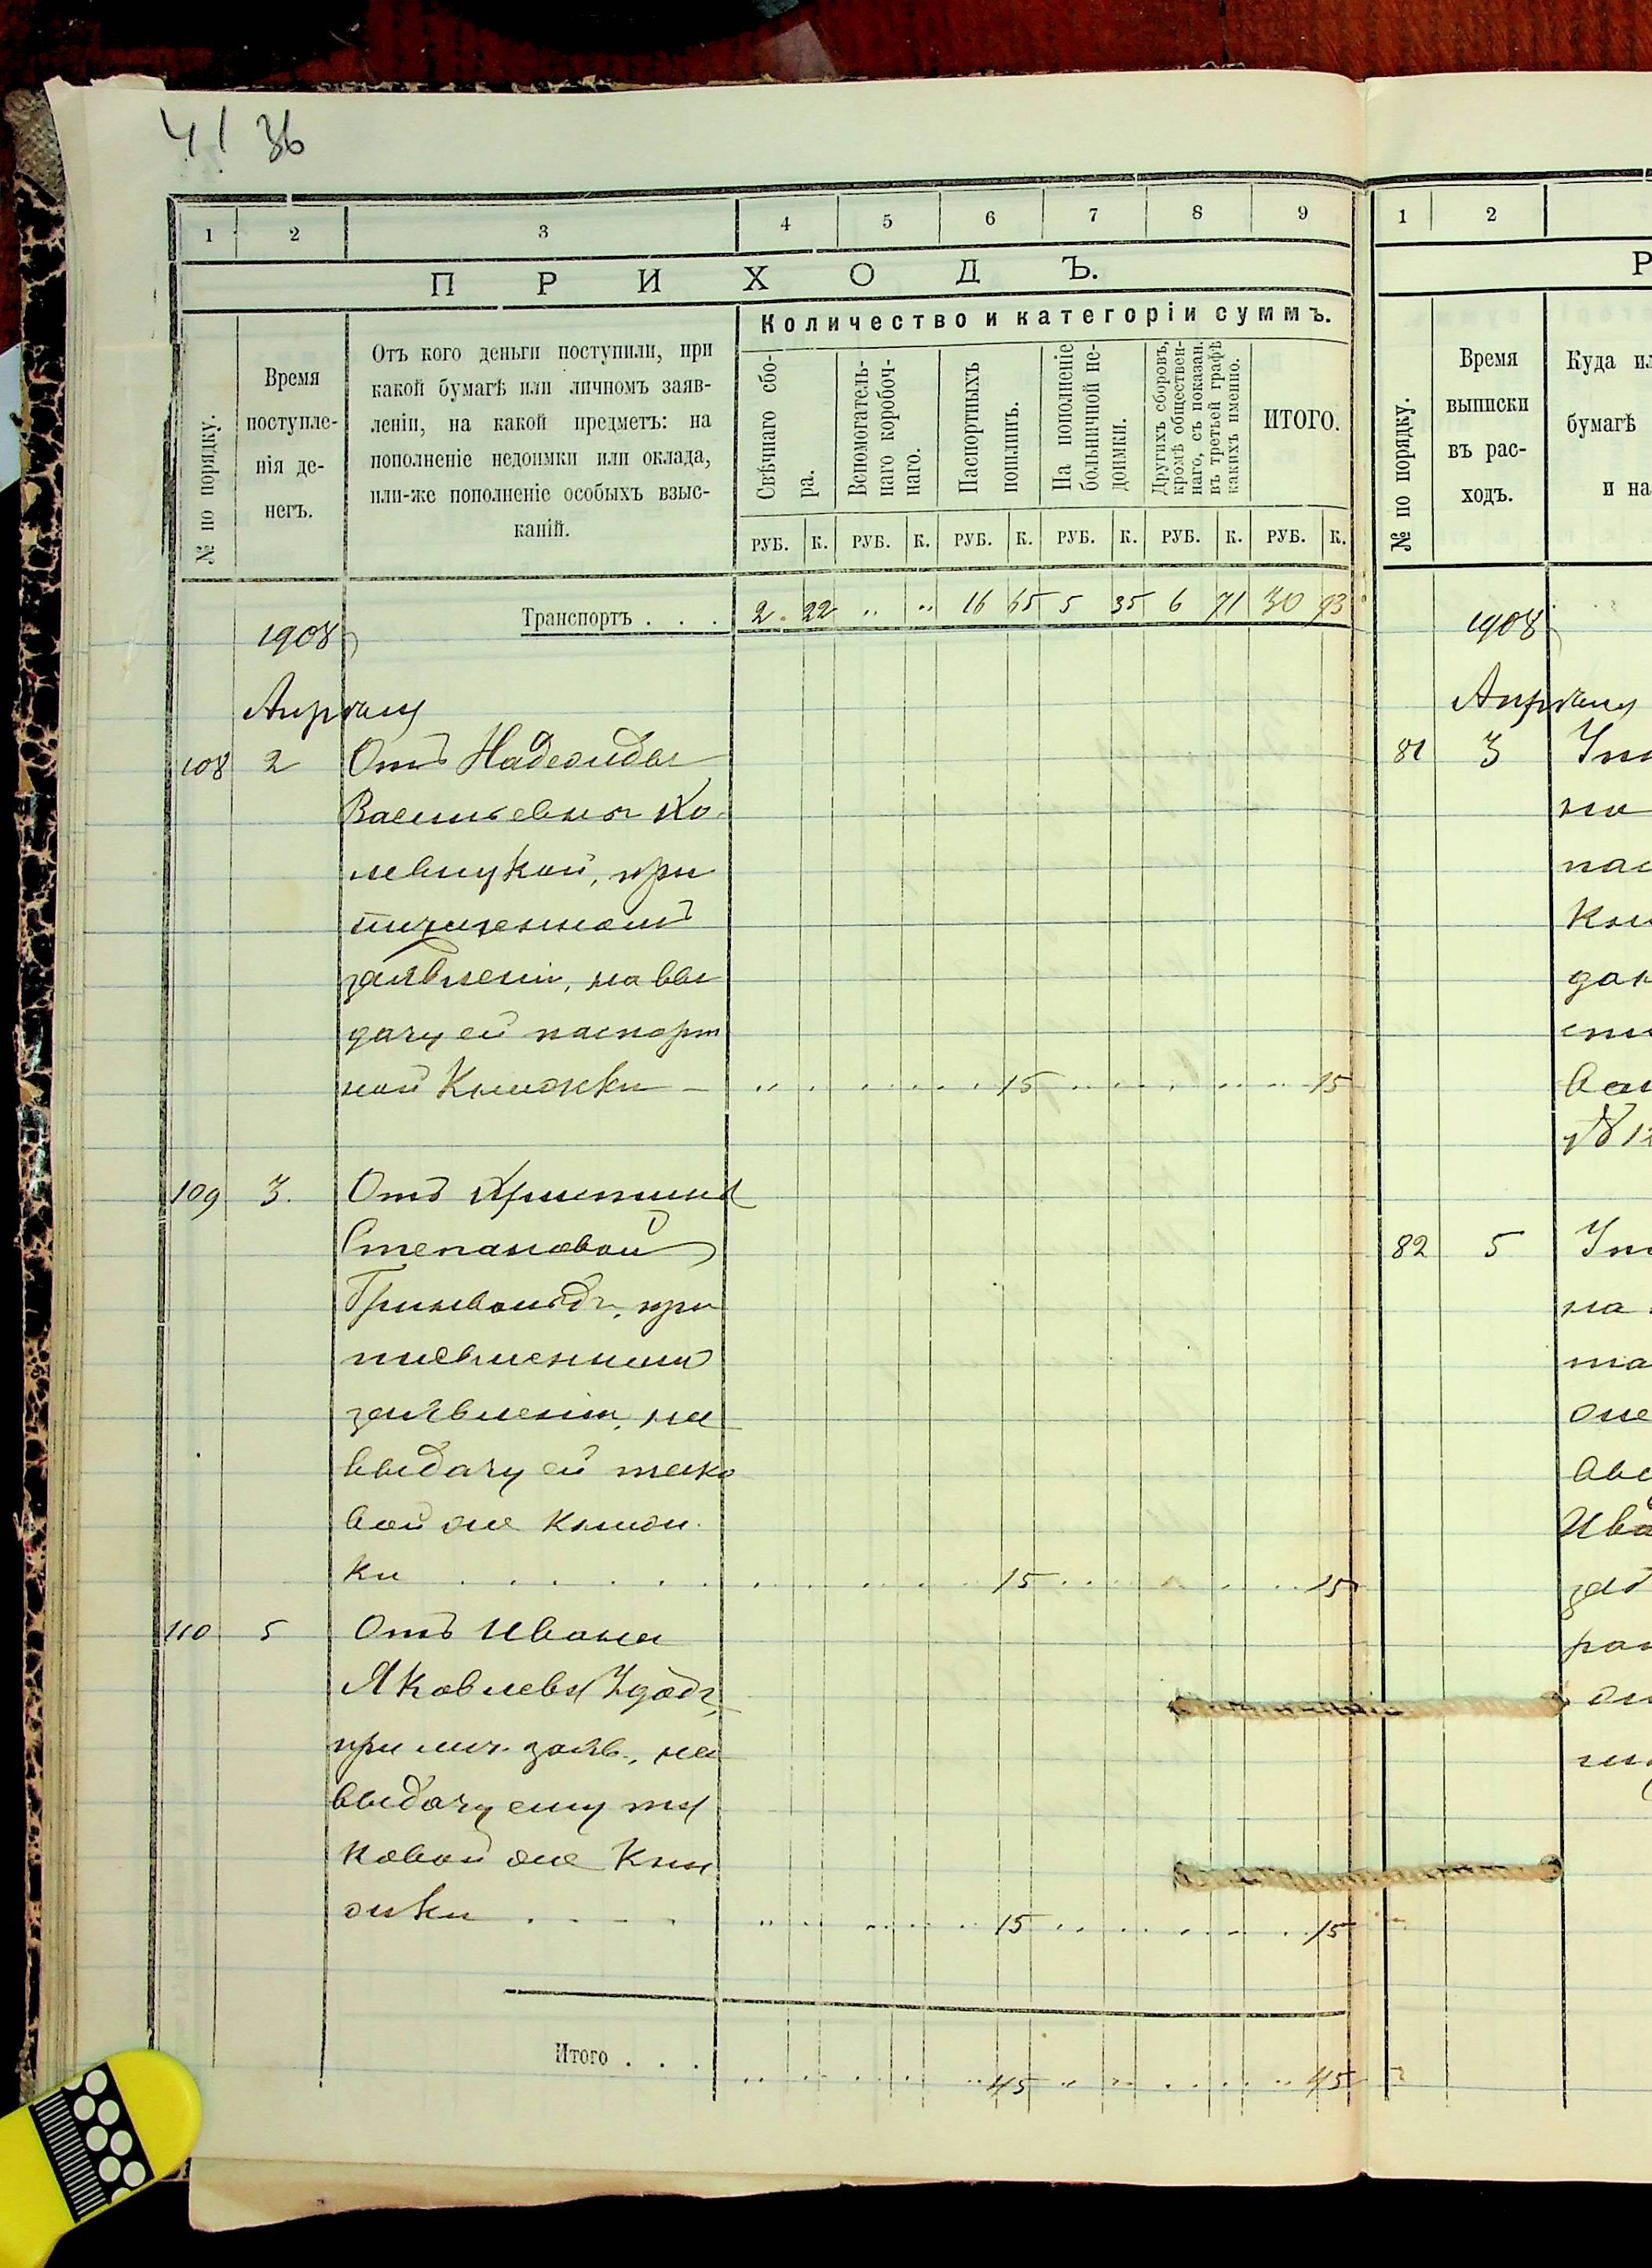 41 36
1 2 3 4 5 6 7 8 9
ПРИХОДЪ.
№ по порядку.
Время
поступле-
нія де-
негъ.
Отъ кого деньги поступили, при
какой бумагѣ или личномъ заяв-
леніи, на какой предметъ: на
пополненіе недоимки или оклада,
или-же пополненіе особыхъ взыс-
каній.
Количество и категоріи суммъ.
Свѣчнаго сбо-
ра.
Вспомогатель-
наго коробоч-
наго.
Паспортныхъ
пошлинъ.
На пополненіе
больничной не-
доимки.
Другихъ сборовъ,
кромѣ обществен-
наго, съ показан.
въ третьей графѣ
какихъ именно.
ИТОГО.
РУБ. К. РУБ. К. РУБ. К. РУБ. К. РУБ. К. РУБ. К.
Транспортъ . . . 2 22 " " 16 65 5 35 6 71 30 93
1908
Апрѣля
108 2 Отъ Надежды
Васильевны Ко-
левицкой, при
письменномъ
заявленіи, на вы
дачу ей паспорт
ной книжки — 15 15
109 3. Отъ Христины
Степановой
Гринвальдъ, при
письменномъ
заявленіи, на
выдачу ей тако
вой же книж-
ки . . . . . 15 15
110 5 Отъ Ивана
Яковлева
при лич. заяв., на
выдачу ему та
ковой же кни
жки . . . . 15 15
Итого . . . 45 45
1 2
Р
№ по порядку.
Время
выписки
въ рас-
ходъ.
Куда ил
бумагѣ
и на
1908
Апрѣля
81 3
на
пас
Кни
дан
№ 12
82 5
на
та
Ива